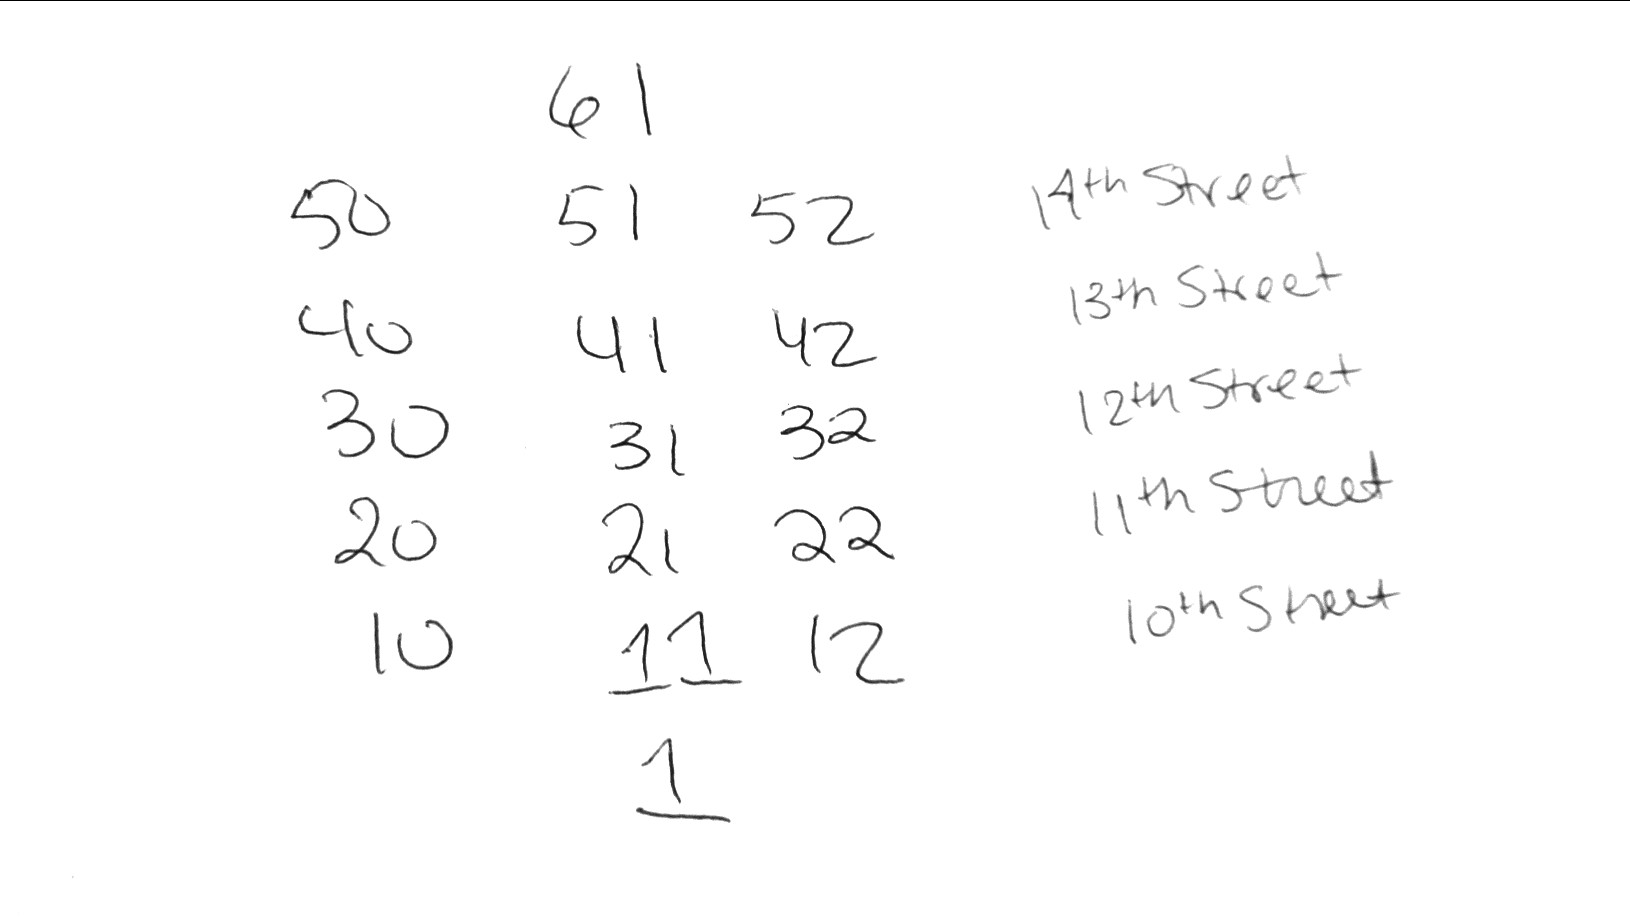 61
50 51 52 14th Street
40 41 42 13th Street
30 31 32 12th Street
20 21 22 11th Street
10 11 12 10th Street
1